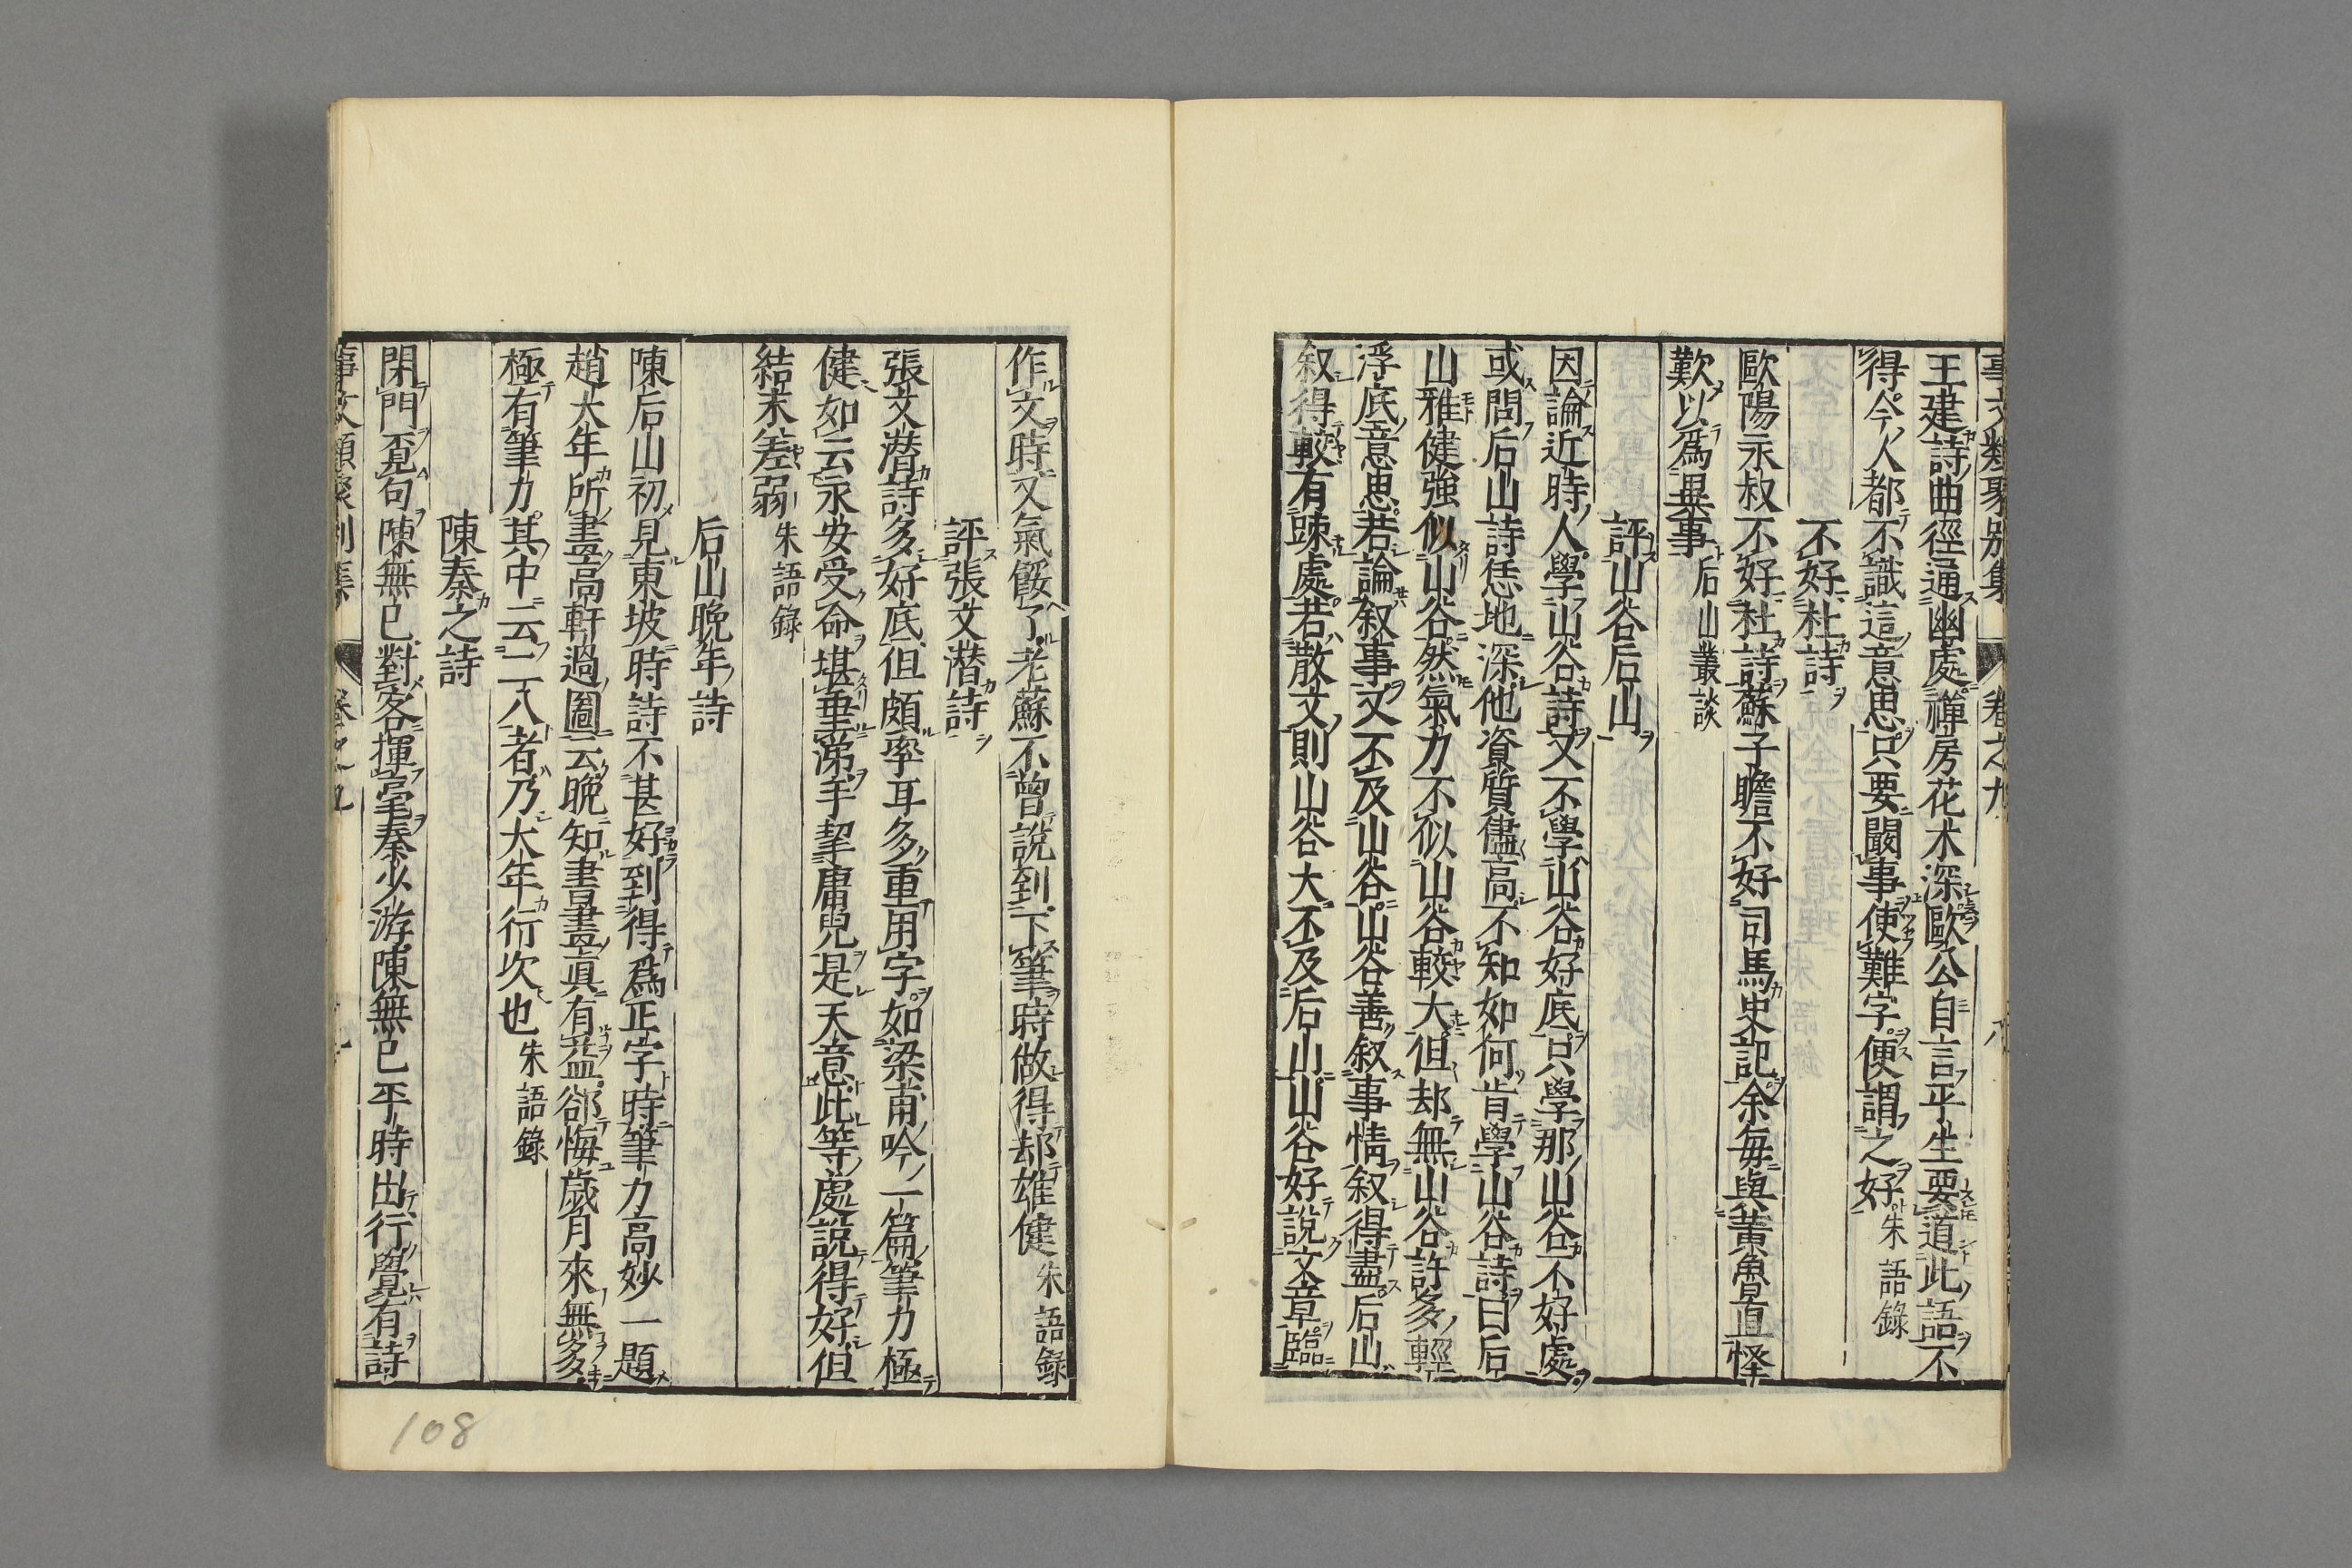 事文類聚别集 卷之九 八
王建詩曲徑通幽處禪房花木深歐公自言平生要道此語不
得今人都不識這意思只要闘事使難字便謂之好朱語錄
不好杜詩
歐陽永叔不好杜詩蘇子瞻不好司馬史記余每與黄魯直怪
歎以爲異事后山叢談
評山谷后山
因論近時人學山谷詩又不學山谷好底只學那山谷不好處
或問后山詩恁地深他資質儘高不知如何肯學山谷詩曰后
山雅健強似山谷然氣力不似山谷較大但却無山谷許多輕
浮底意思若論叙事又不及山谷山谷善叙事情叙得盡后山
叙得較有踈處若散文則山谷大不及后山山谷好說文章臨
作文時又氣餒了老蘇不曾說到下筆時做得却雄健朱語錄
評張文潜詩
張文潜詩多好底但頗率耳多重用字如梁甫吟一篇筆力極
健如云永安受命堪垂涕手挈庸兒是天意此等處說得好但
結末差弱朱語錄
后山晩年詩
陳后山初見東坡時詩不甚好到得爲正字時筆力高妙一題
趙大年所畫高軒過圖云晩知書畫眞有益郤悔歲月來無多
極有筆力其中云二八者乃大年行次也朱語錄
陳秦之詩
閉門覓句陳無已對客揮毫秦少游陳無已平時出行覺有詩
事文類聚別集 卷之九
108